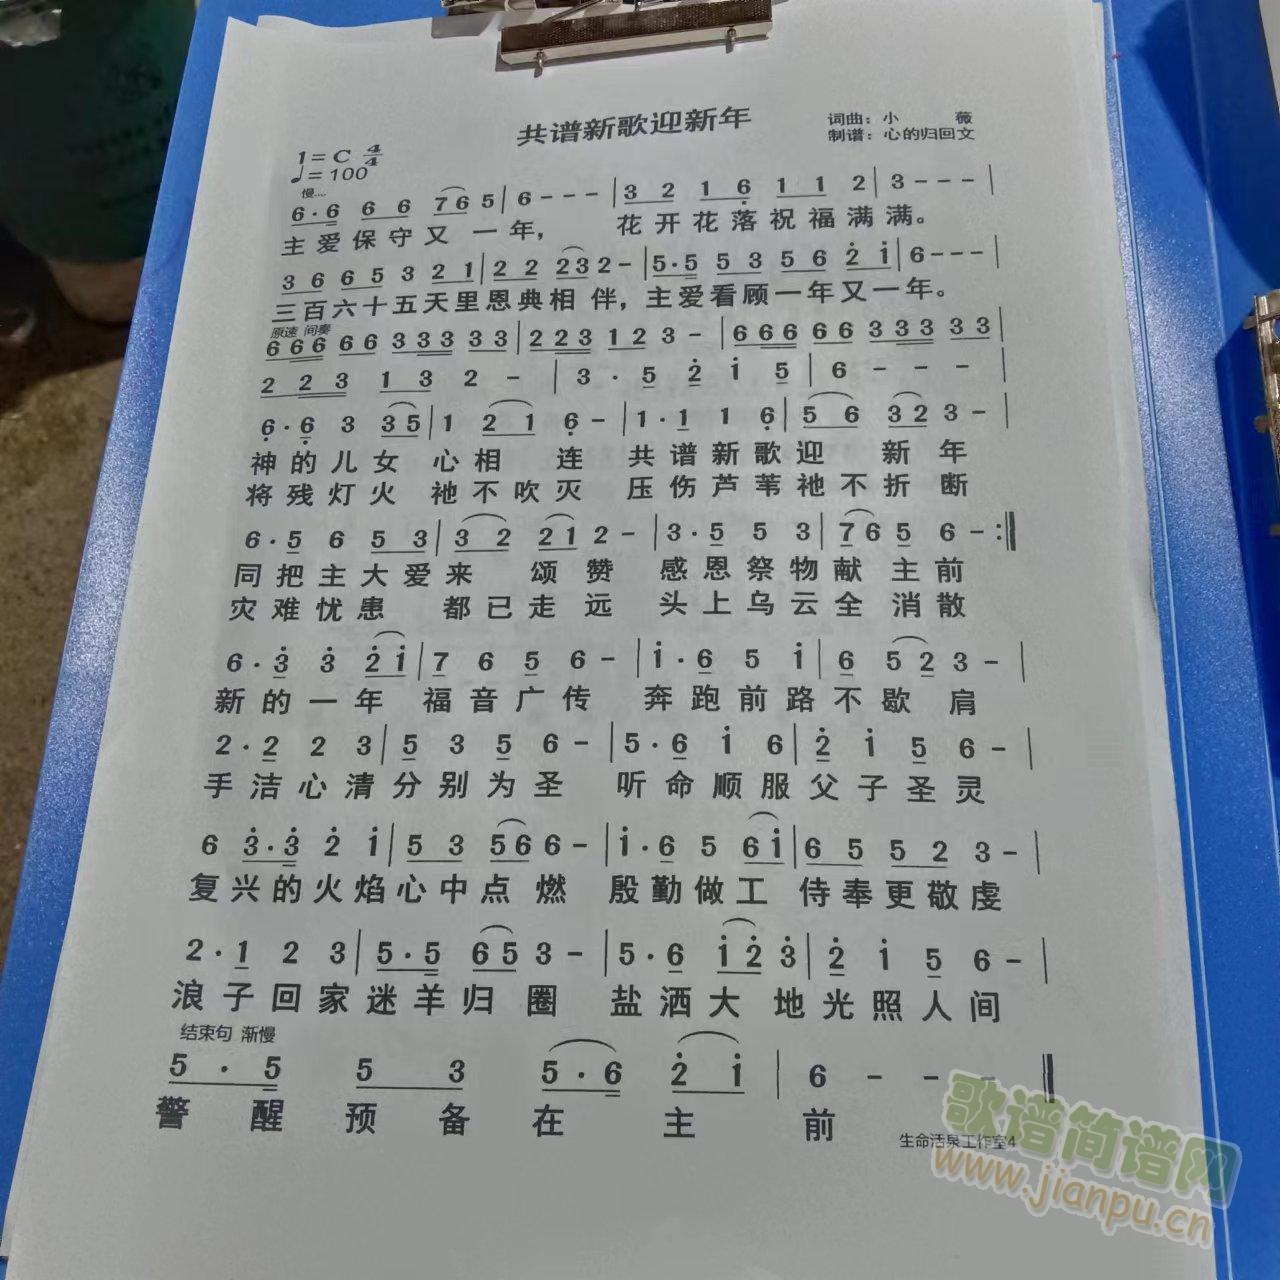 共谱新歌迎新年
词曲：小 薇
制谱：心的归回文
1=C 4/4
♩=100
慢....
6·6 6 6 76 5|6---|3 2 1 6 1 1 2|3---|
主爱保守又一年， 花开花落祝福满满。
3 6 6 5 3 2 1|2 2 23 2-|5·5 5 3 5 6 2 1|6---|
三百六十五天里恩典相伴，主爱看顾一年又一年。
原速 间奏
666 66 333 33|223 12 3-|666 66 333 33|
2 23 13 2-|3·5 2 1 5|6---|
6·6 3 35|1 21 6-|1·1 1 6|5 6 32 3-|
神的儿女 心相 连 共谱新歌迎 新 年
将残灯火 祂不吹灭 压伤芦苇祂不折 断
6·5 6 53|32 21 2-|3·5 5 3|76 5 6-:|
同把主大爱来 颂赞 感恩祭物献 主前
灾难忧患 都已走远 头上乌云全 消散
6·3 3 21|7 6 5 6-|1·6 5 1|6 52 3-|
新的一年 福音广传 奔跑前路不歇 肩
2·2 2 3|5 3 5 6-|5·6 1 6|2 1 5 6-|
手洁心清分别为圣 听命顺服父子圣灵
6 3·3 2 1|5 3 56 6-|1·6 5 61|6 5 5 2 3-|
复兴的火焰心中点 燃 殷勤做工 侍奉更敬虔
2·1 2 3|5·5 65 3-|5·6 12 3|2 1 5 6-|
浪子回家迷羊归 圈 盐洒大 地光照人间
结束句 渐慢
5·5 5 3 5·6 2 1|6---‖
警醒预备在主前
生命活泉工作室4
歌谱简谱网
www.jianpu.cn